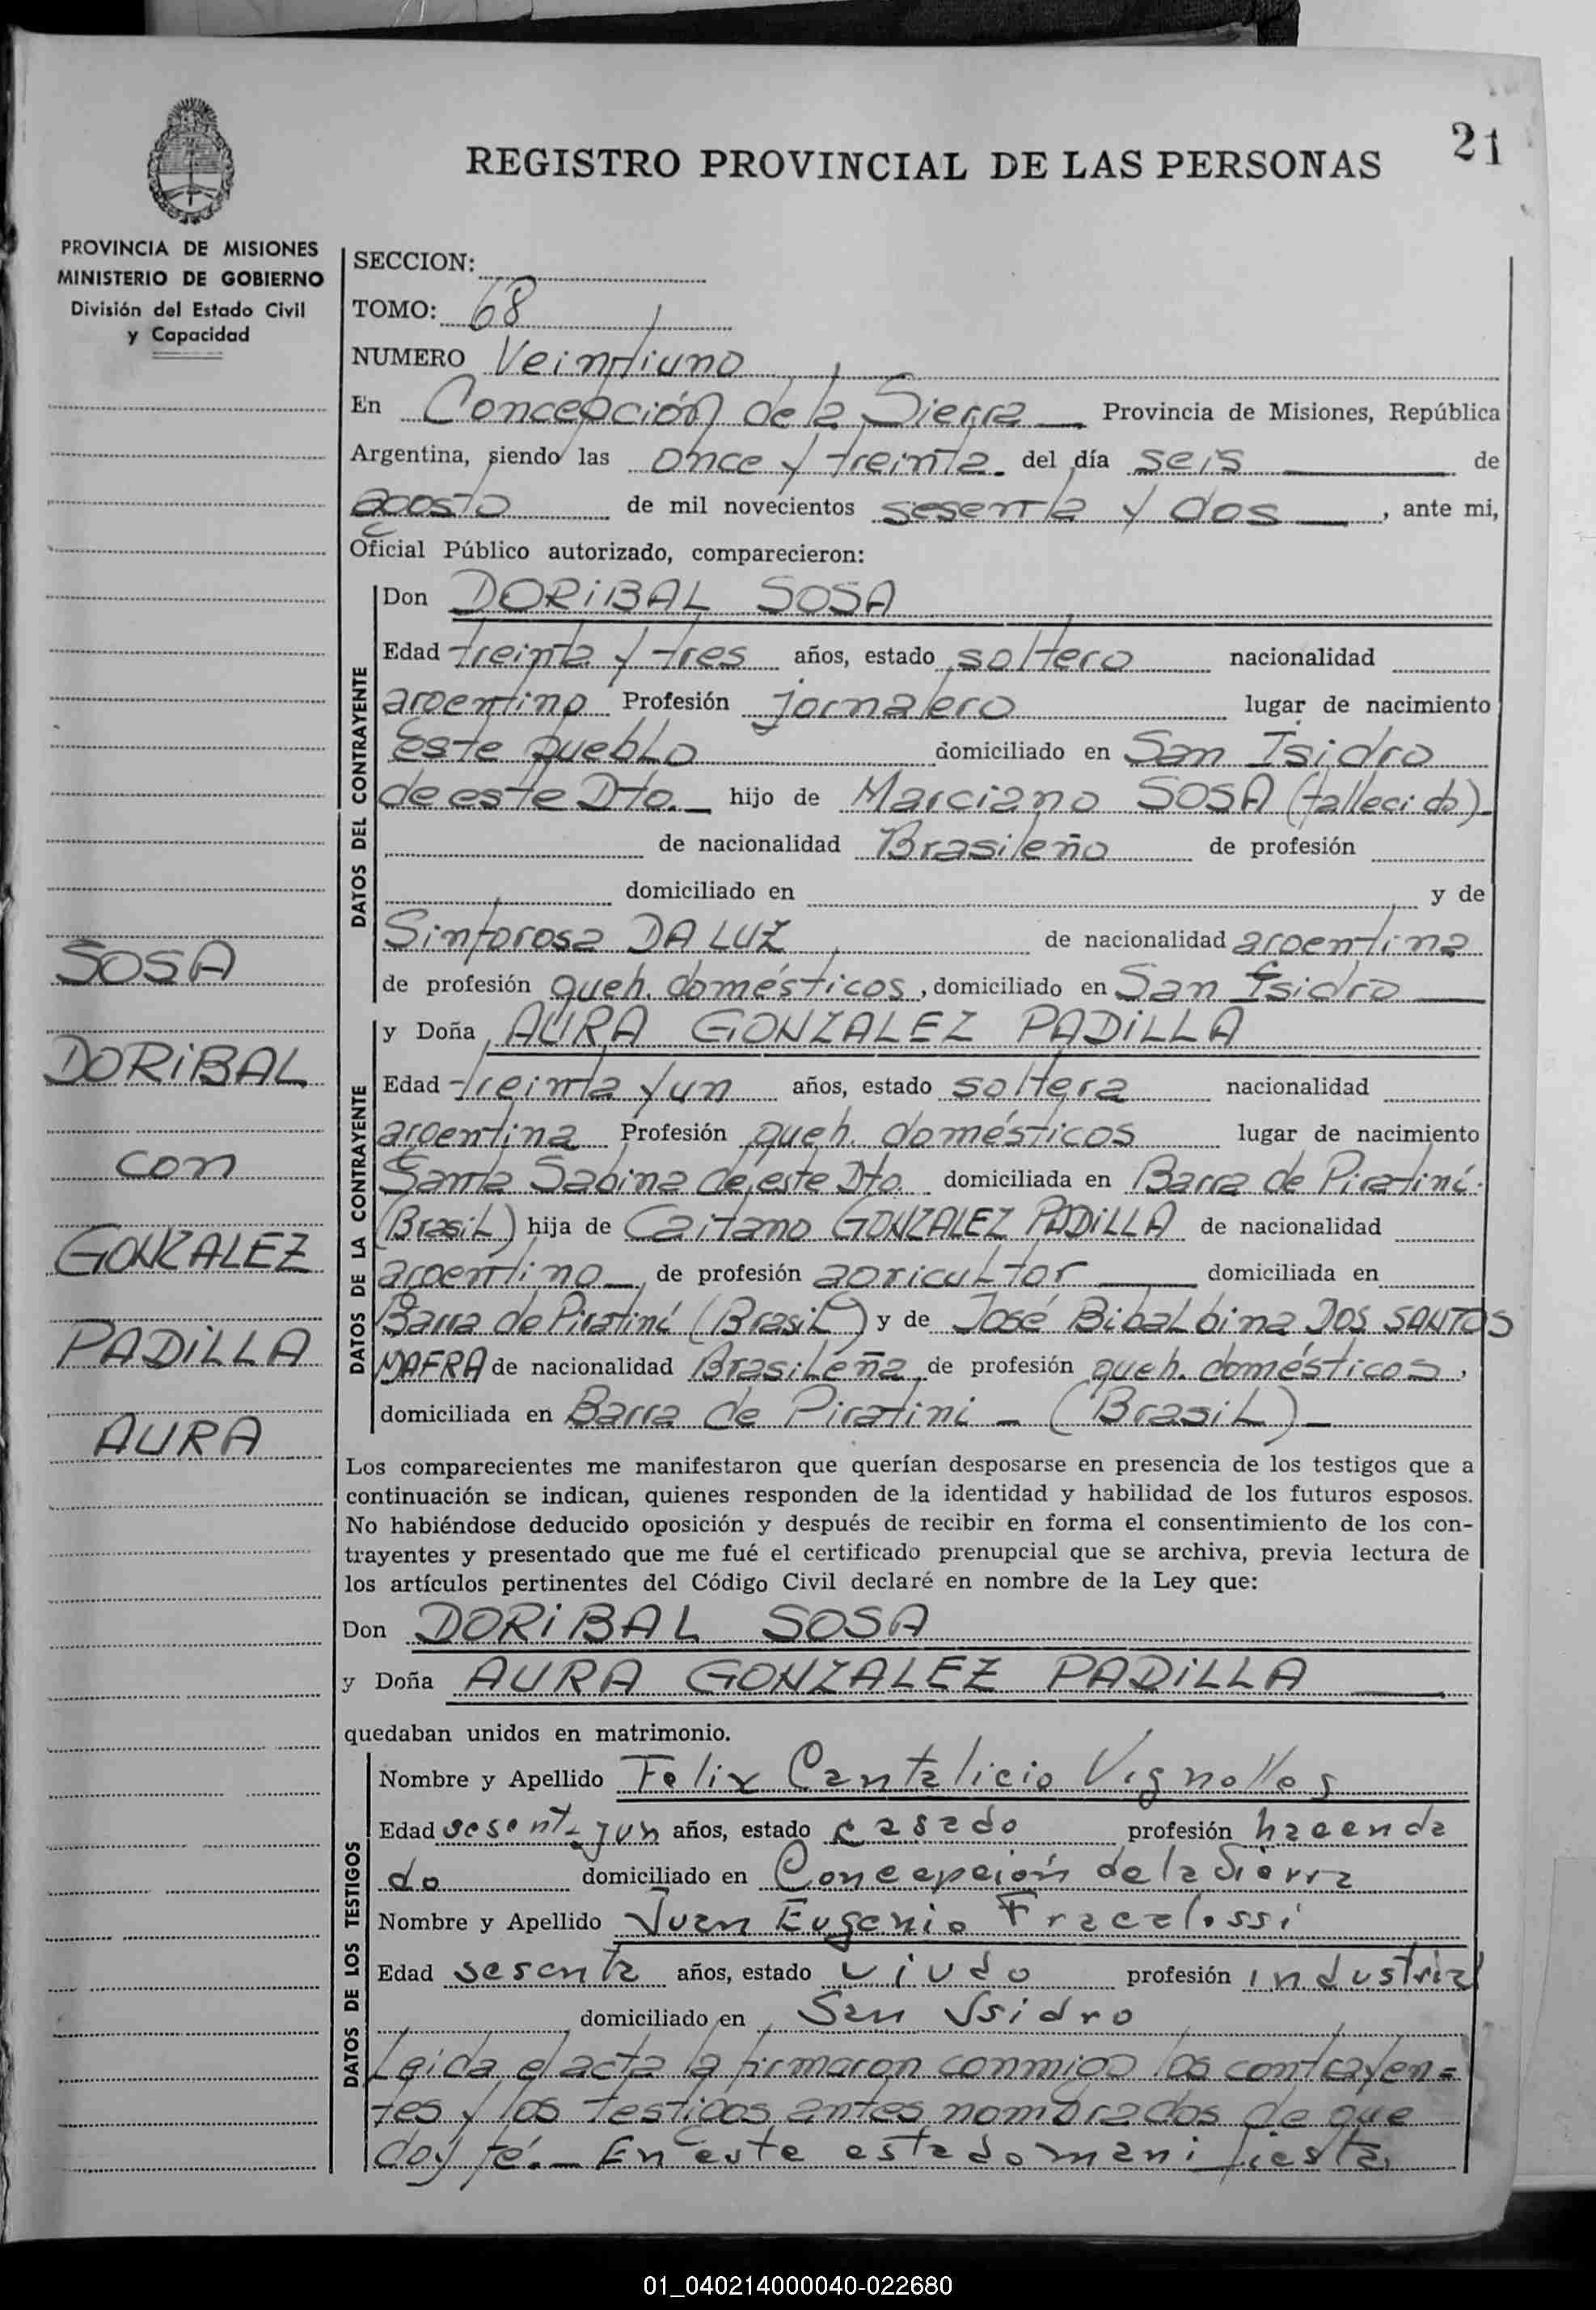 21
REGISTRO PROVINCIAL DE LAS PERSONAS
PROVINCIA DE MISIONES
MINISTERIO DE GOBIERNO
División del Estado Civil
y Capacidad
SECCION:
TOMO: 68
NUMERO Veintiuno
En Concepción de la Sierra Provincia de Misiones, República
Argentina, siendo las once y treinta del día seis de
agosto de mil novecientos sesenta y dos, ante mi,
Oficial Público autorizado, comparecieron:
DATOS DEL CONTRAYENTE
Don DORIBAL SOSA
Edad treinta y tres años, estado soltero nacionalidad
argentino Profesión jornalero lugar de nacimiento
Este pueblo domiciliado en San Isidro
de este Dto. hijo de Marciano SOSA (fallecido)
de nacionalidad Brasileño de profesión
domiciliado en y de
Sinforosa DA LUZ de nacionalidad argentina
de profesión queh. domésticos, domiciliado en San Isidro
DATOS DE LA CONTRAYENTE
y Doña AURA GONZALEZ PADILLA
Edad treinta y un años, estado soltera nacionalidad
argentina Profesión queh. domésticos lugar de nacimiento
Santa Sabina de este Dto. domiciliada en Barra de Piratiní
(Brasil) hija de Caitano GONZALEZ PADILLA de nacionalidad
argentino, de profesión agricultor domiciliada en
Barra de Piratiní (Brasil) y de José Bibalbina DOS SANTOS
MAFRA de nacionalidad Brasileña de profesión queh. domésticos,
domiciliada en Barra de Piratini - (Brasil) -
Los comparecientes me manifestaron que querían desposarse en presencia de los testigos que a
continuación se indican, quienes responden de la identidad y habilidad de los futuros esposos.
No habiéndose deducido oposición y después de recibir en forma el consentimiento de los con-
trayentes y presentado que me fué el certificado prenupcial que se archiva, previa lectura de
los artículos pertinentes del Código Civil declaré en nombre de la Ley que:
Don DORIBAL SOSA
y Doña AURA GONZALEZ PADILLA
quedaban unidos en matrimonio.
DATOS DE LOS TESTIGOS
Nombre y Apellido Felix Cantalicio Vignolles
Edad sesenta y un años, estado casado profesión hacenda
do domiciliado en Concepción de la Sierra
Nombre y Apellido Juan Eugenio Fracalossi
Edad sesenta años, estado viudo profesión industrial
domiciliado en San Isidro
Leida el acta la firmaron conmigo los contrayen=
tes y los testigos antes nombrados de que
doy fé.- En este estado manifiesta
SOSA
DORIBAL
con
GONZALEZ
PADILLA
AURA
01_040214000040-022680